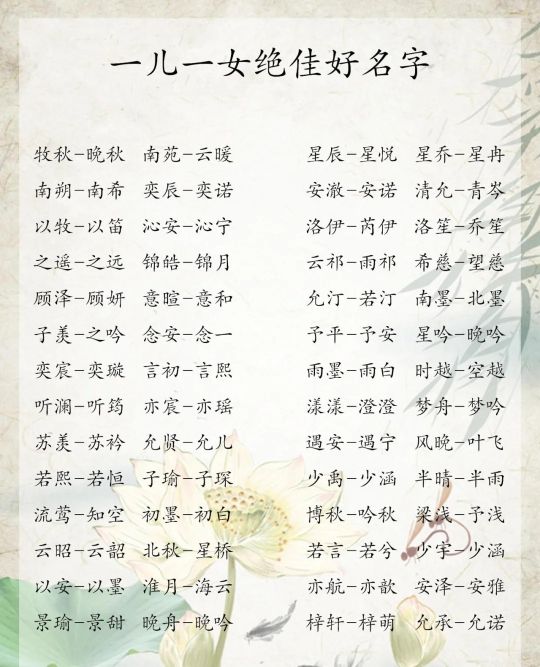 一儿一女绝佳好名字
牧秋-晚秋 南苑-云暖 星辰-星悦 星乔-星冉
南朔-南希 奕辰-奕诺 安澈-安诺 清允-青岑
以牧-以笛 沁安-沁宁 洛伊-芮伊 洛笙-乔笙
之遥-之远 锦皓-锦月 云祁-雨祁 希慈-望慈
顾泽-顾妍 意暄-意和 允汀-若汀 南墨-北墨
子羡-之吟 念安-念一 予平-予安 星吟-晚吟
奕宸-奕璇 言初-言熙 雨墨-雨白 时越-空越
听澜-听筠 亦宸-亦瑶 漾漾-澄澄 梦舟-梦吟
苏羡-苏衿 允贤-允儿 遇安-遇宁 风晚-叶飞
若熙-若恒 子瑜-子琛 少禹-少涵 半晴-半雨
流莺-知空 初墨-初白 博秋-吟秋 梁浅-予浅
云昭-云韶 北秋-星桥 若言-若兮 少宇-少涵
以安-以墨 淮月-海云 亦航-亦歆 安泽-安雅
景瑜-景甜 晚舟-晚吟 梓轩-梓萌 允承-允诺